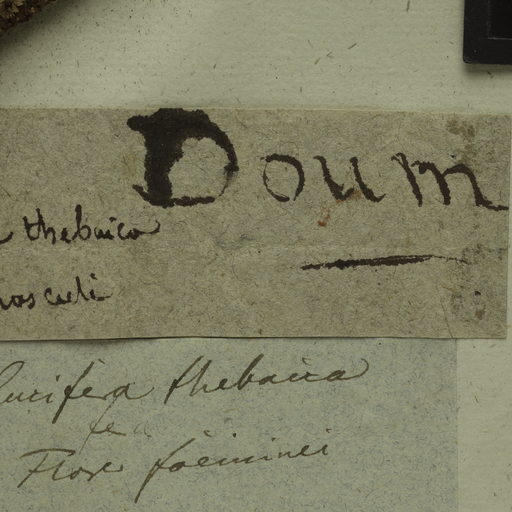 Doum
thebaica
masculi
Lucifera thebaica
Flore foeminei